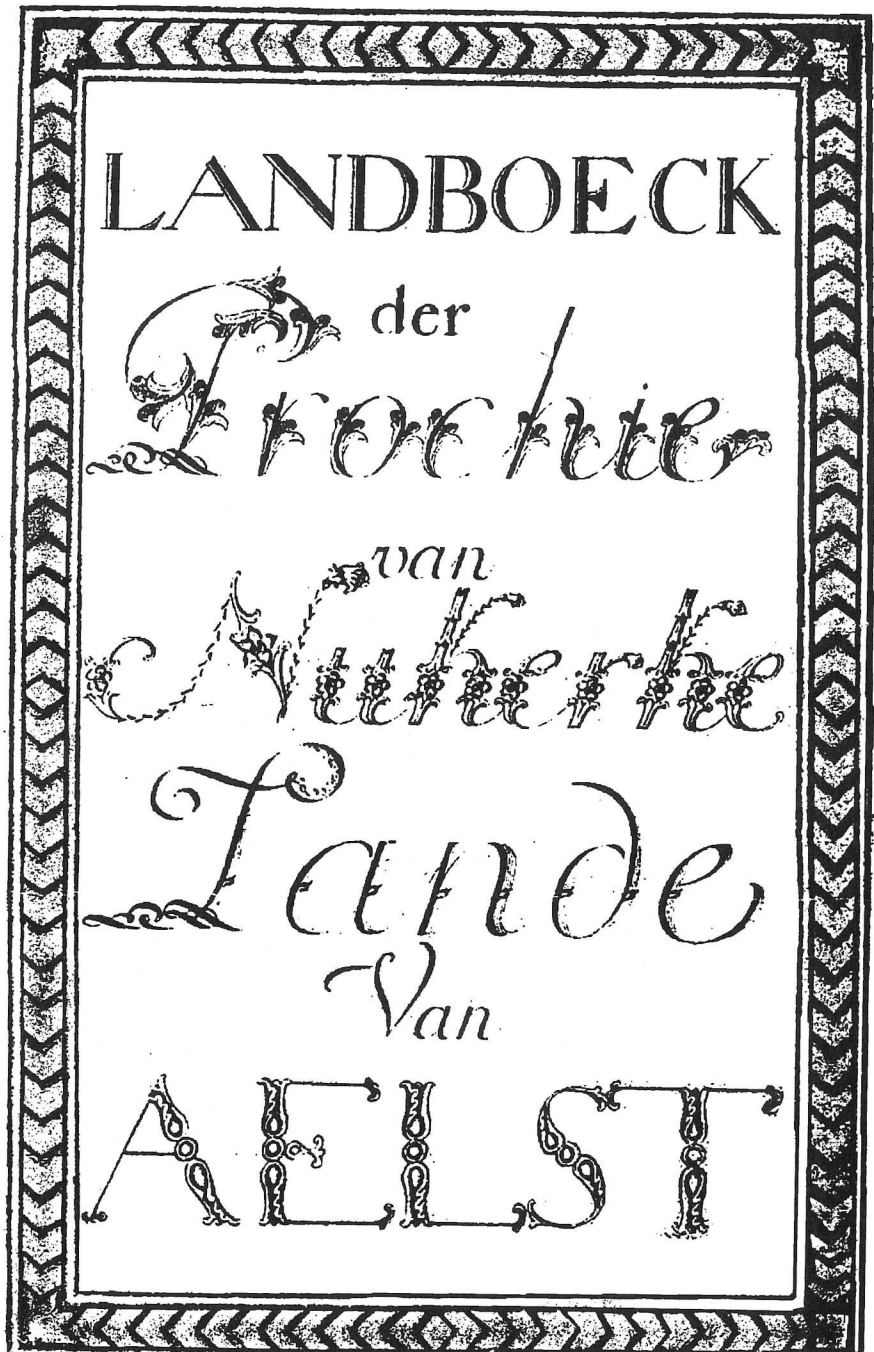 LANDBOECK
der
Prochie
van
Nukerke
Lande
Van
AELST